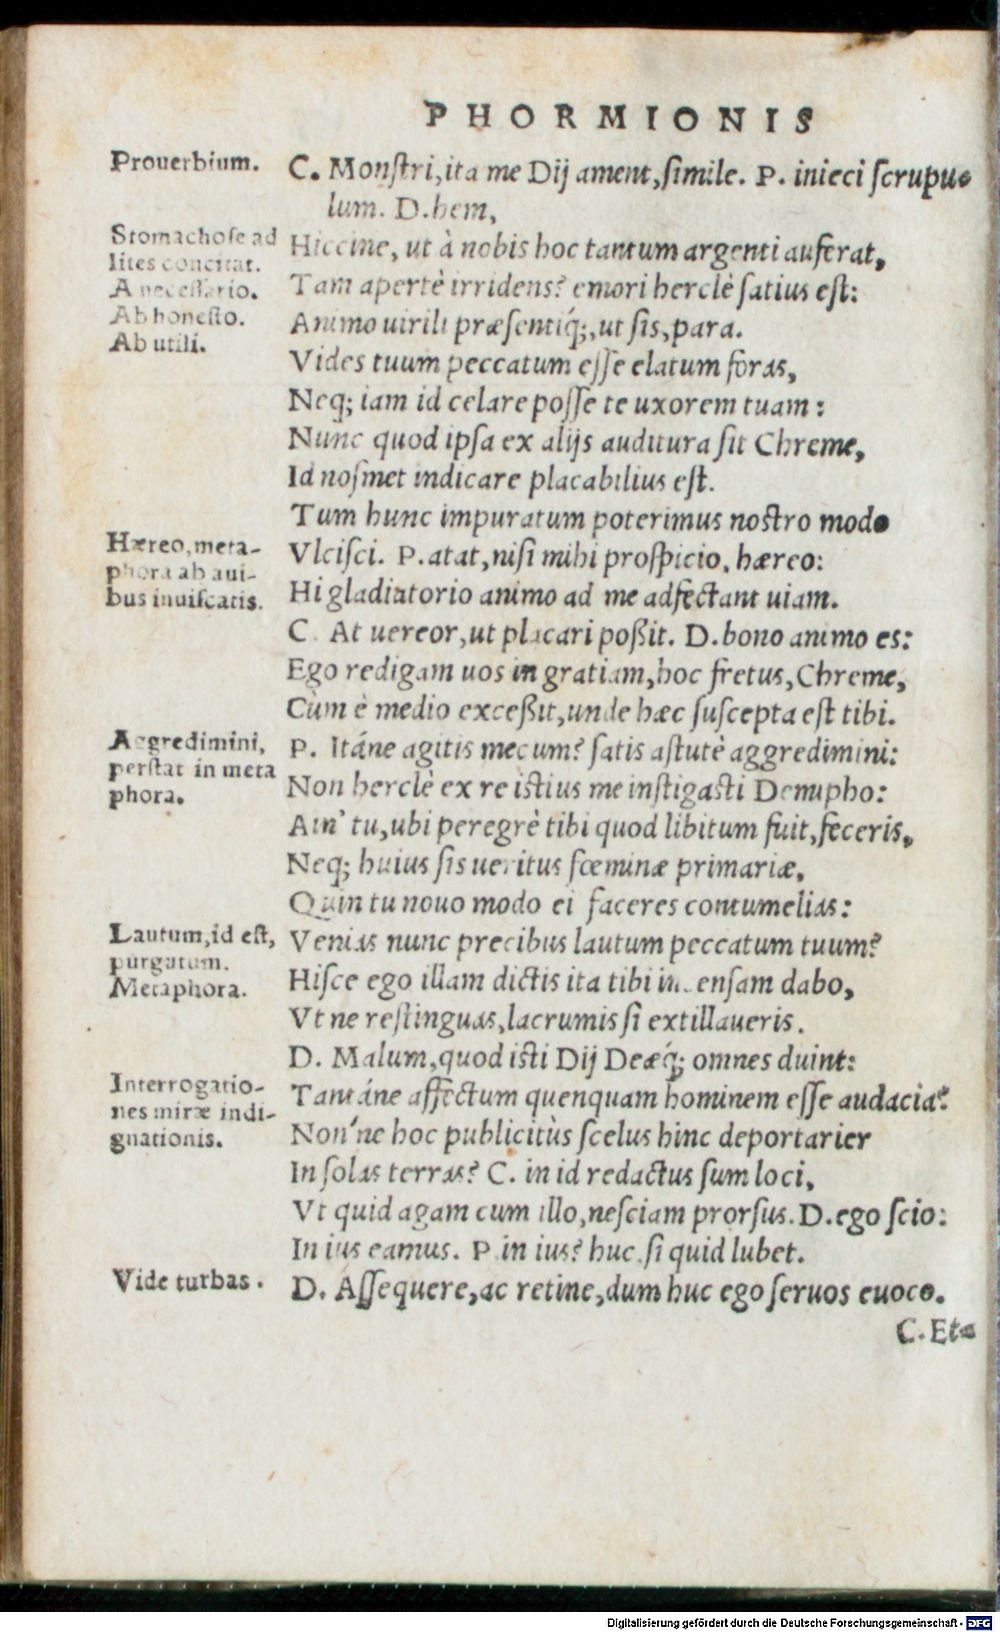 PHORMIONIS
Prouerbium.
C. Monſtri, ita me Dij ament, ſimile. P. inieci ſcrupu-
lum. D. hem,
Stomachoſe ad
lites concitat.
A neceſſario.
Ab honeſto.
Ab utili.
Hiccine, ut à nobis hoc tantum argenti auferat,
Tam apertè irridens? emori herclè ſatius eſt:
Animo uirili præſentiq́;, ut ſis, para.
Vides tuum peccatum eſſe elatum foras,
Neq; iam id celare poſſe te uxorem tuam:
Nunc quod ipſa ex alijs auditura ſit Chreme,
Id noſmet indicare placabilius eſt.
Tum hunc impuratum poterimus noſtro modo
Hæreo, meta-
phora ab aui-
bus inuiſcatis.
Vlciſci. P. atat, niſi mihi proſpicio, hæreo:
Hi gladiatorio animo ad me adfectant uiam.
C. At uereor, ut placari poßit. D. bono animo es:
Ego redigam uos in gratiam, hoc fretus, Chreme,
Cùm è medio exceßit, unde hæc ſuſcepta eſt tibi.
Aggredimini,
perſtat in meta
phora.
P. Itáne agitis mecum? ſatis aſtutè aggredimini:
Non herclè ex re iſtius me inſtigaſti Demipho:
Ain' tu, ubi peregrè tibi quod libitum fuit, feceris,
Neq; huius ſis ueritus fœminæ primariæ,
Quin tu nouo modo ei faceres contumelias:
Lautum, id eſt,
purgatum.
Metaphora.
Venias nunc precibus lautum peccatum tuum?
Hiſce ego illam dictis ita tibi incenſam dabo,
Vt ne reſtinguas, lacrumis ſi extillaueris.
D. Malum, quod iſti Dij Deæq́; omnes duint:
Interrogatio-
nes miræ indi-
gnationis.
Tantáne affectum quenquam hominem eſſe audacia?
Non'ne hoc publicitùs ſcelus hinc deportarier
In ſolas terras? C. in id redactus ſum loci,
Vt quid agam cum illo, neſciam prorſus. D. ego ſcio:
In ius eamus. P. in ius? huc, ſi quid lubet.
Vide turbas.
D. Aſſequere, ac retine, dum huc ego ſeruos euoco.
C. Et-
Digitalisierung gefördert durch die Deutsche Forschungsgemeinschaft - DFG